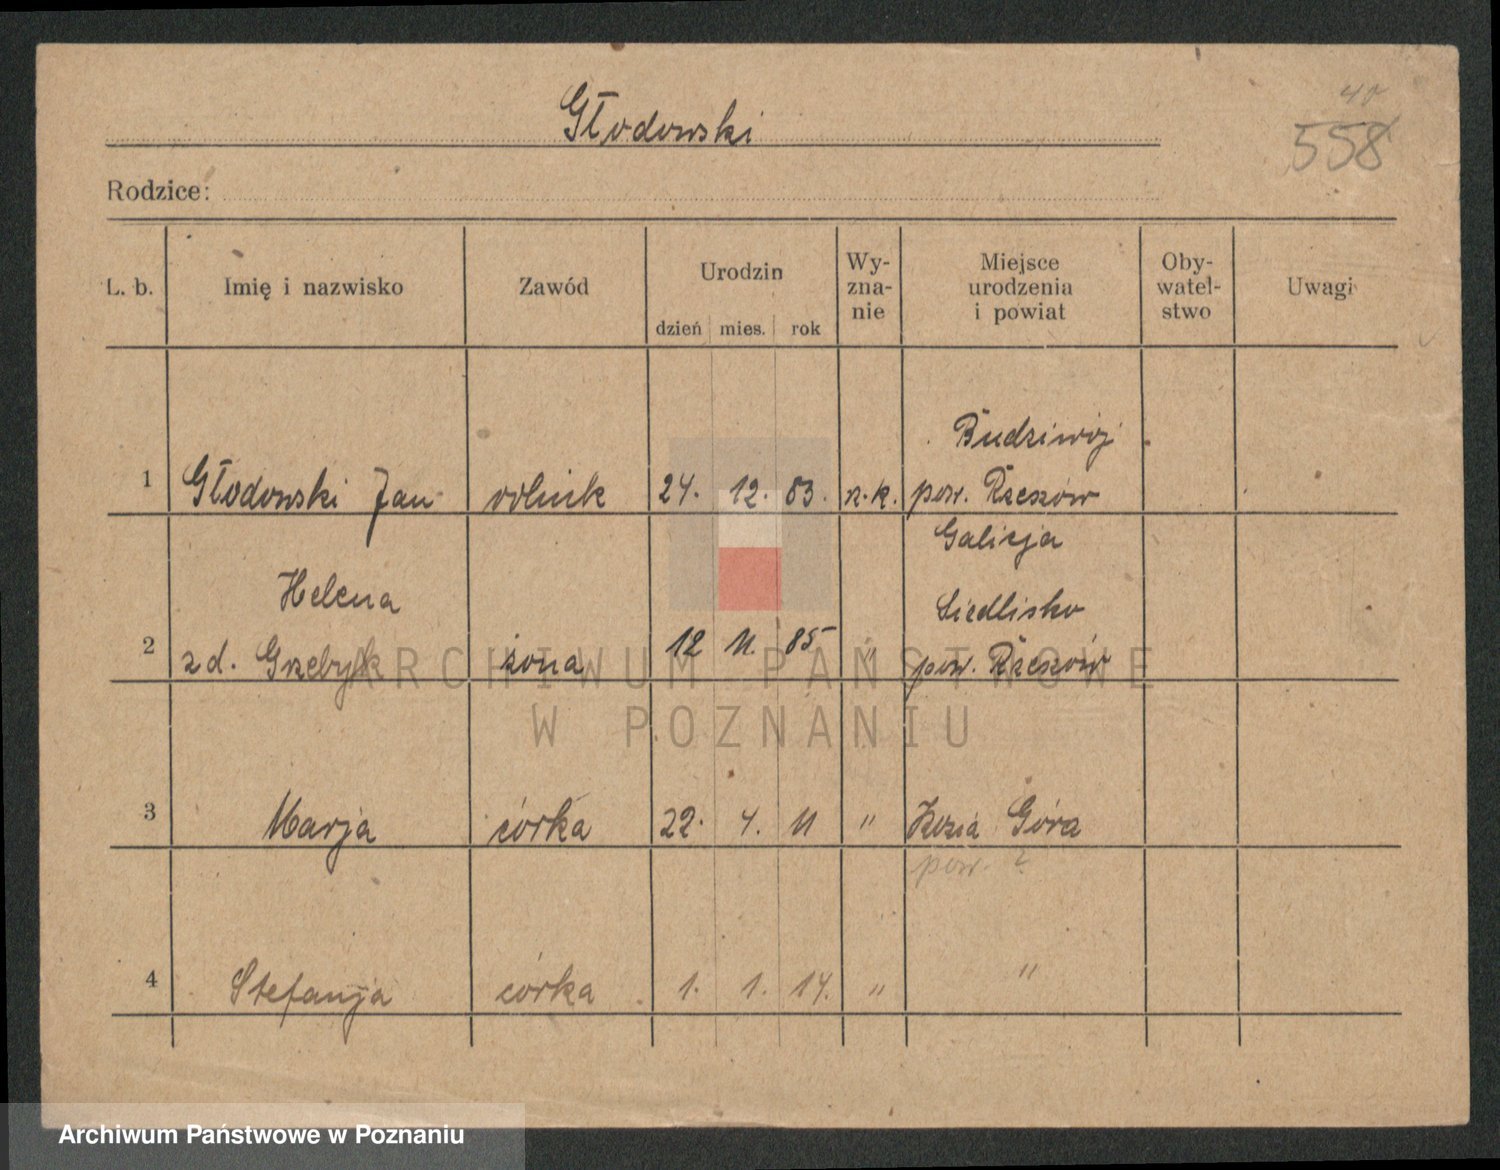 Głodowski
40
558
Rodzice:
L. b.
Imię i nazwisko
Zawód
Urodzin
dzień mies. rok
Wy-
zna-
nie
Miejsce
urodzenia
i powiat
Oby-
watel-
stwo
Uwagi
Budziwój
1 Głodowski Jan rolnik 24. 12. 83. r.k. pow. Rzeszów
Galicja
Helena Siedlisko
2 zd. Grzebyk żona 12 11. 85 " pow. Rzeszów
3 Marja córka 22. 4. 11 " Kozia Góra
pow. ?
4 Stefanja córka 1. 1. 14. " "
ARCHIWUM PAŃSTWOWE
W POZNANIU
Archiwum Państwowe w Poznaniu